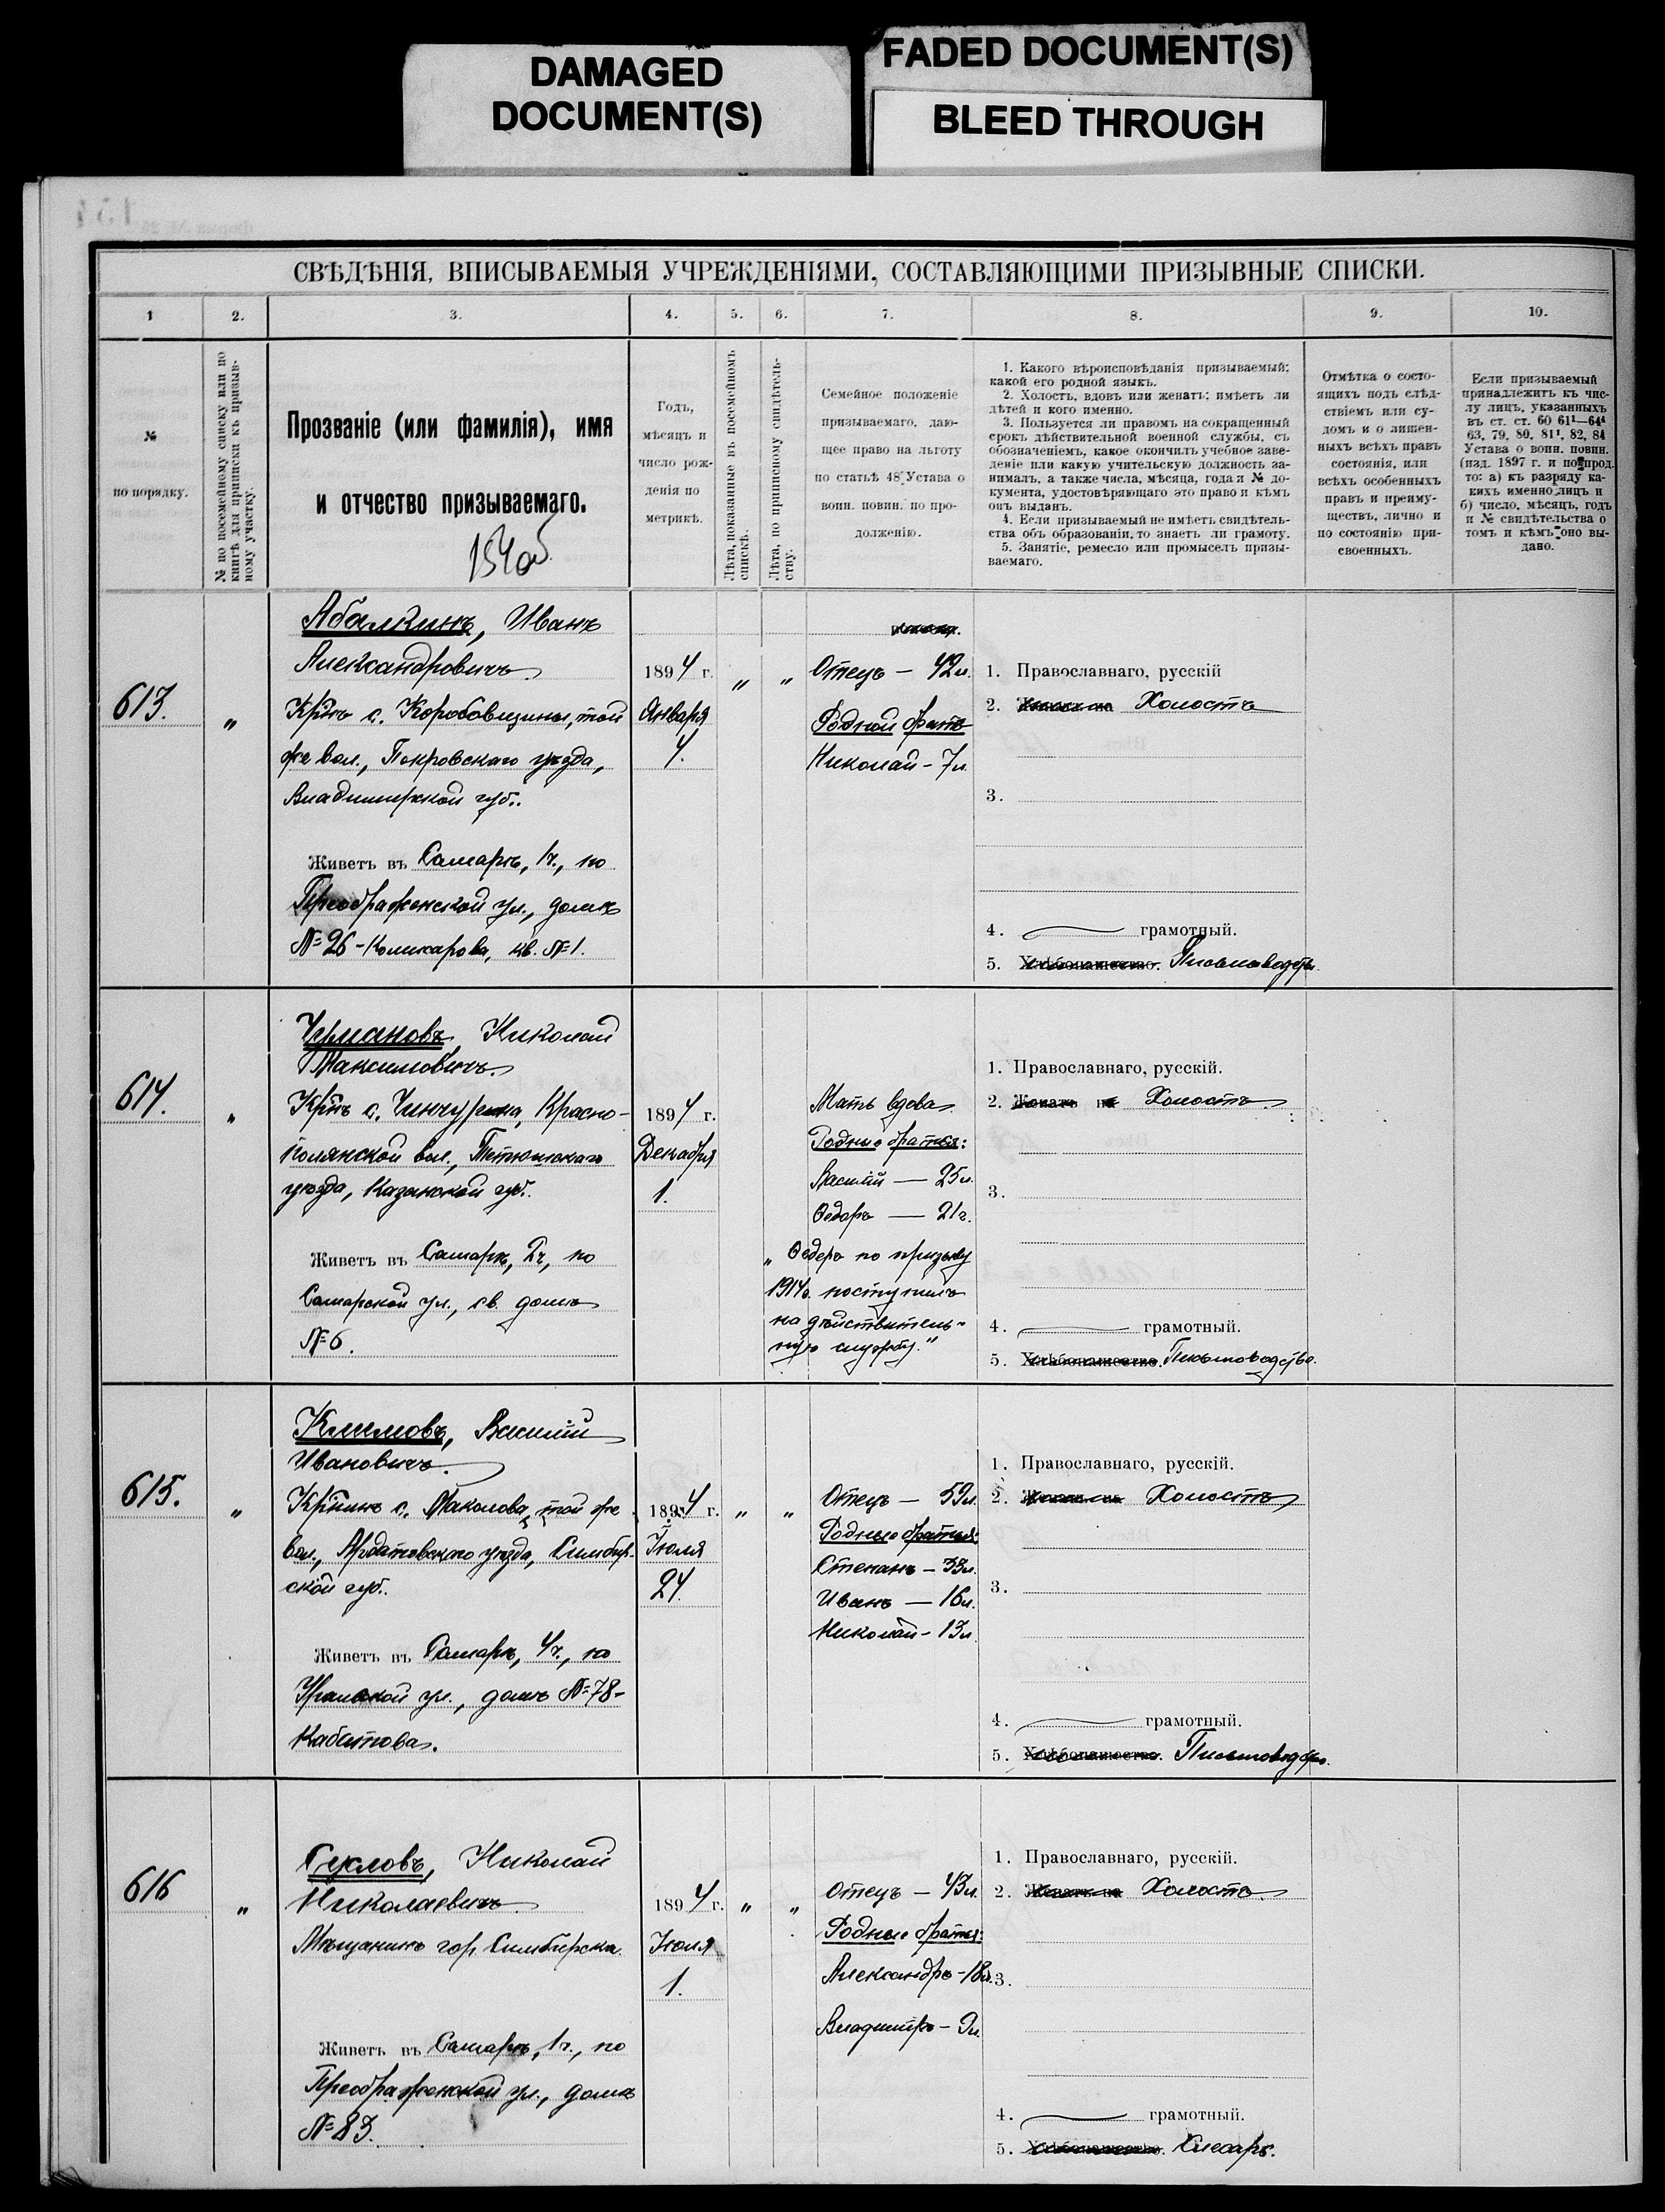 DAMAGED
DOCUMENT(S)
FADED DOCUMENT(S)
BLEED THROUGH
СВѢДѢНІЯ, ВПИСЫВАЕМЫЯ УЧРЕЖДЕНІЯМИ, СОСТАВЛЯЮЩИМИ ПРИЗЫВНЫЕ СПИСКИ.
1
2.
3.
4.
5.
6.
7.
8.
9.
10.
№
по порядку.
№ по посемейному списку или по
книгѣ для приписки къ призыв-
ному участку.
Прозваніе (или фамилія), имя
и отчество призываемаго.
154об
Годъ,
мѣсяцъ и
число рож-
денія по
метрикѣ.
Лѣта, показанные въ посемейномъ
спискѣ.
Лѣта, по приписному свидѣтель-
ству.
Семейное положеніе
призываемаго, даю-
щее право на льготу
по статьѣ 48 Устава о
воин. повин. по про-
долженію.
1. Какого вѣроисповѣданія призываемый;
какой его родной языкъ.
2. Холостъ, вдовъ или женатъ; имѣетъ ли
дѣтей и кого именно.
3. Пользуется ли правомъ на сокращенный
срокъ дѣйствительной военной службы, съ
обозначеніемъ, какое окончилъ учебное заве-
деніе или какую учительскую должность за-
нималъ, а также числа, мѣсяца, года и № до-
кумента, удостовѣряющаго это право и кѣмъ
онъ выданъ.
4. Если призываемый не имѣетъ свидѣтель-
ства объ образованіи, то знаетъ ли грамоту.
5. Занятіе, ремесло или промыселъ призы-
ваемаго.
Отмѣтка о состо-
ящихъ подъ слѣд-
ствіемъ или су-
домъ и о лишен-
ныхъ всѣхъ правъ
состоянія, или
всѣхъ особенныхъ
правъ и преиму-
ществъ, лично и
по состоянію при-
своенныхъ.
Если призываемый
принадлежитъ къ чис-
лу лицъ, указанныхъ
въ ст. ст. 60 61¹—64⁴
63, 79, 80, 81¹, 82, 84
Устава о воин. повин.
(изд. 1897 г. и по прод.
то: а) къ разряду ка-
кихъ именно лицъ и
б) число, мѣсяцъ, годъ
и № свидѣтельства о
томъ и кѣмъ оно вы-
дано.
613.
"
Абалкинъ, Иванъ
Александровичъ
Кр̃нъ с. Коробовщины, той
же вол., Покровскаго уѣзда,
Владимирской губ.
Живетъ въ Самарѣ, 1ч., по
Преображенской ул., домъ
№ 26 - Комисарова, кв. № 1.
1894 г.
Января
4.
" "
Отецъ — 42л.
Родной братъ
Николай - 7л.
1. Православнаго, русскій
2. Холостъ
3.
4. грамотный.
5. Хлѣбопашество. Письмоводство.
614.
"
Урмановъ Николай
Максимовичъ.
Кр̃нъ с. Чинчурина, Красно-
полянской вол., Тетюшскаго
уѣзда, Казанской губ.
Живетъ въ Самарѣ, 2ч, по
Самарской ул., св. домъ
№ 6.
1894 г.
Декабря
1.
Мать вдова
Родные братья:
Василій — 25л.
Ѳедоръ — 21г.
"Ѳедоръ по призыву
1914г. поступилъ
на дѣйствитель-
ную службу."
1. Православнаго, русскій.
2. Женатъ на Холостъ
3.
4. грамотный.
5. Хлѣбопашество. Письмоводство.
615.
"
Климовъ, Василій
Ивановичъ.
Кр̃нинъ с. Маколова, той же
вол., Ардатовскаго уѣзда, Симбир-
ской губ.
Живетъ въ Самарѣ, 4ч., по
Уральской ул., домъ № 78-
Кабатова.
1894 г.
Іюля
24.
" "
Отецъ — 59л.
Родные братья:
Степанъ — 33л.
Иванъ — 16л.
Николай - 13л.
1. Православнаго, русскій.
2. Холостъ
3.
4. грамотный.
5. Хлѣбопашество. Письмоводство.
616
"
Сусловъ, Николай
Николаевичъ
Мѣщанинъ гор. Симбирска.
Живетъ въ Самарѣ, 1ч., по
Преображенской ул., домъ
№ 83.
1894 г.
Іюля
1.
" "
Отецъ — 43л.
Родные братья:
Александръ - 18л.
Владиміръ - 9л.
1. Православнаго, русскій.
2. Холостъ
3.
4. грамотный.
5. Хлѣбопашество. Слесарь.